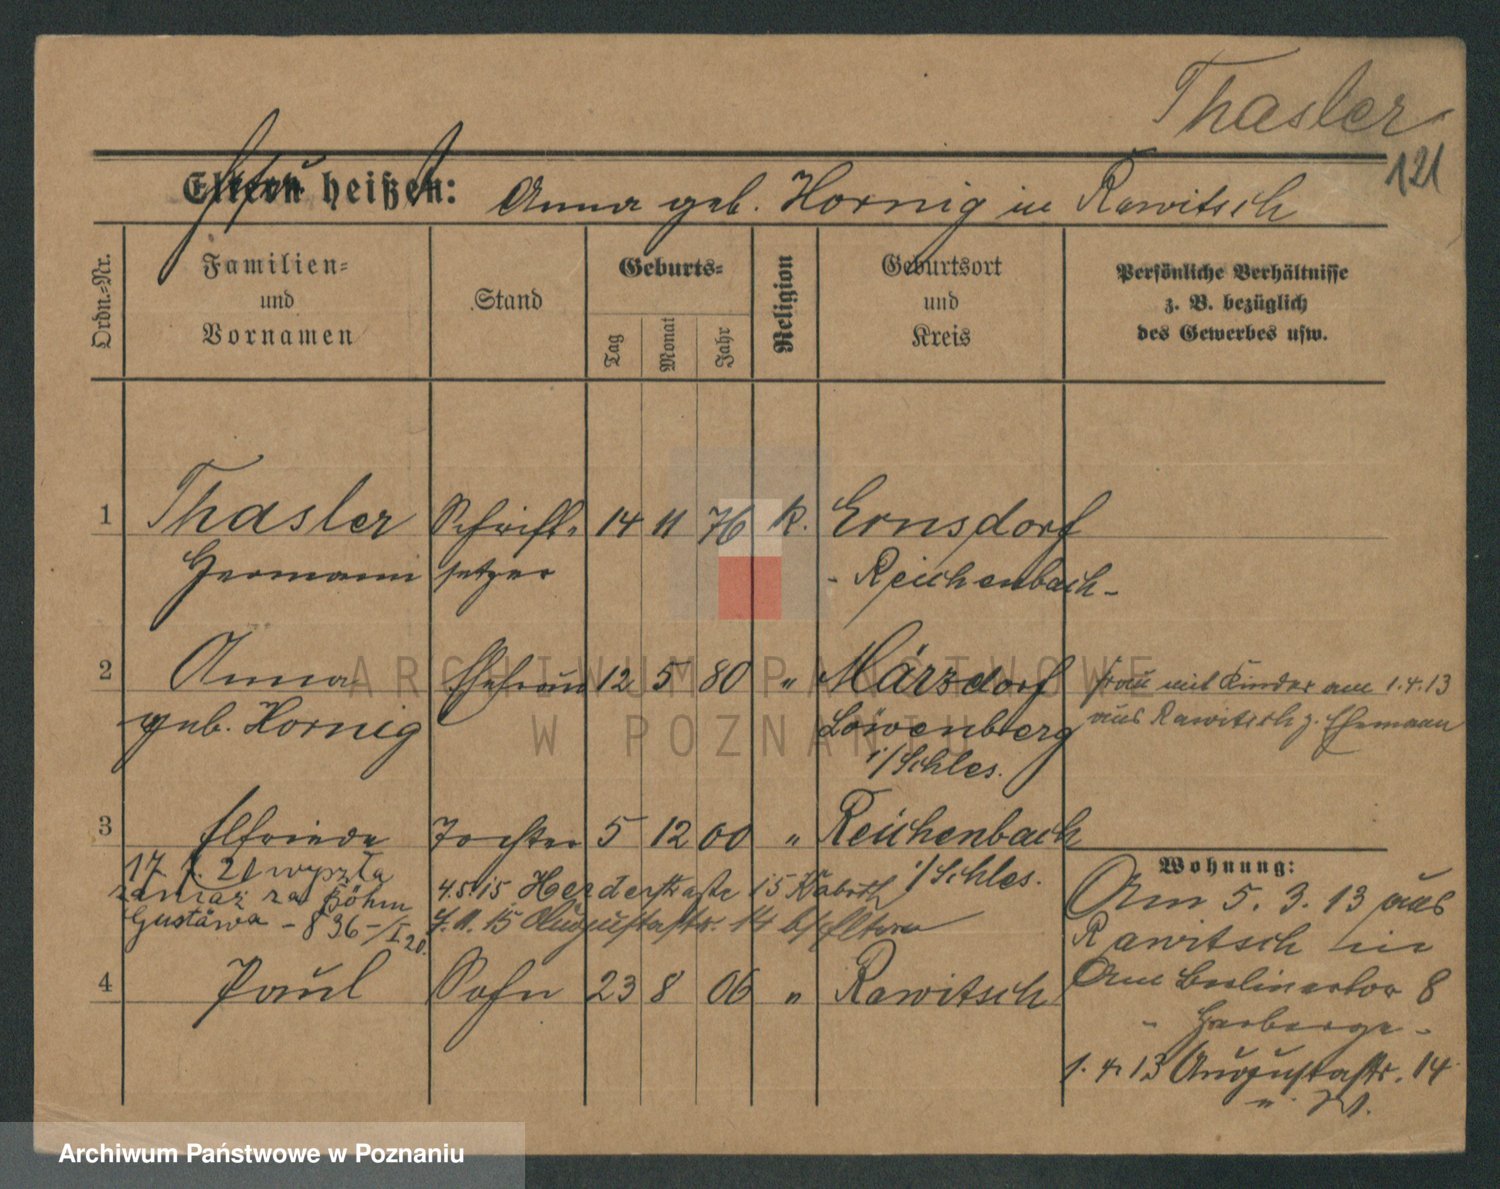 Thasler
121
Eltern heißen: Anna geb. Hornig in Rawitsch
Ordn.=Nr.
Familien=
und
Vornamen
Stand
Geburts=
Tag
Monat
Jahr
Religion
Geburtsort
und
Kreis
Persönliche Verhältnisse
z. B. bezüglich
des Gewerbes usw.
1 Thasler Schrift= 14 11 76 k. Ernsdorf
Hermann setzer - Reichenbach -
2 Anna Ehefrau 12 5 80 " Märzdorf Frau mit Kinder am 1.4.13
geb. Hornig Löwenberg aus Rawitsch z. Ehemann
i/Schles.
3 Elfriede Tochter 5 12 00 " Reichenbach
i/Schles.
17 21 wyszła
zamąż za Böhm
Gustawa - 836 -/I 20.
4.5.15 Herderstraße 15
7.11.15 Augustastr. 14 b/Eltern
4 Paul Sohn 23 8 06 " Rawitsch
Wohnung:
Am 5. 3. 13 aus
Rawitsch in
Am Berlinertor 8
- Herberge -
1. 4. 13 Augustastr. 14
ARCHIWUM PAŃSTWOWE
W POZNANIU
Archiwum Państwowe w Poznaniu